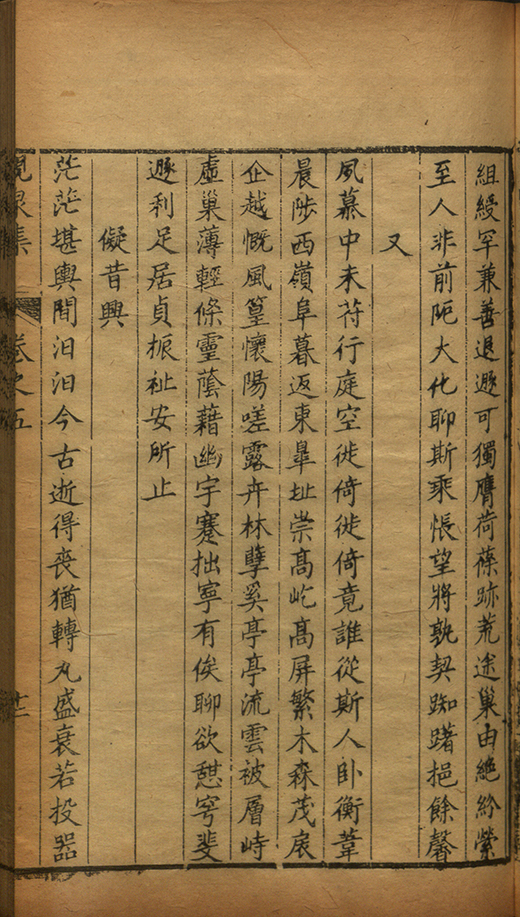 組綬罕兼善退遯可獨膺荷蓧跡荒途巢由絕紛縈
至人非前阨大化聊斯乘悵望將孰契踟躇挹餘馨
又
夙慕中未苻行庭空徙倚徙倚竟誰從斯人卧衡葦
晨陟西嶺阜暮返東皐址崇高屹高屏繁木森茂扆
企越慨風篁懷陽嗟露卉林孽奚亭亭流雲被層峙
虛巢薄輕條靈蔭藉幽宇蹇拙寧有俟聊欲憇穹斐
遯利足居貞振祉安所止
儗昔興
茫茫堪輿間汩汩今古逝得喪猶轉丸盛衰若投器
泉集 卷之五